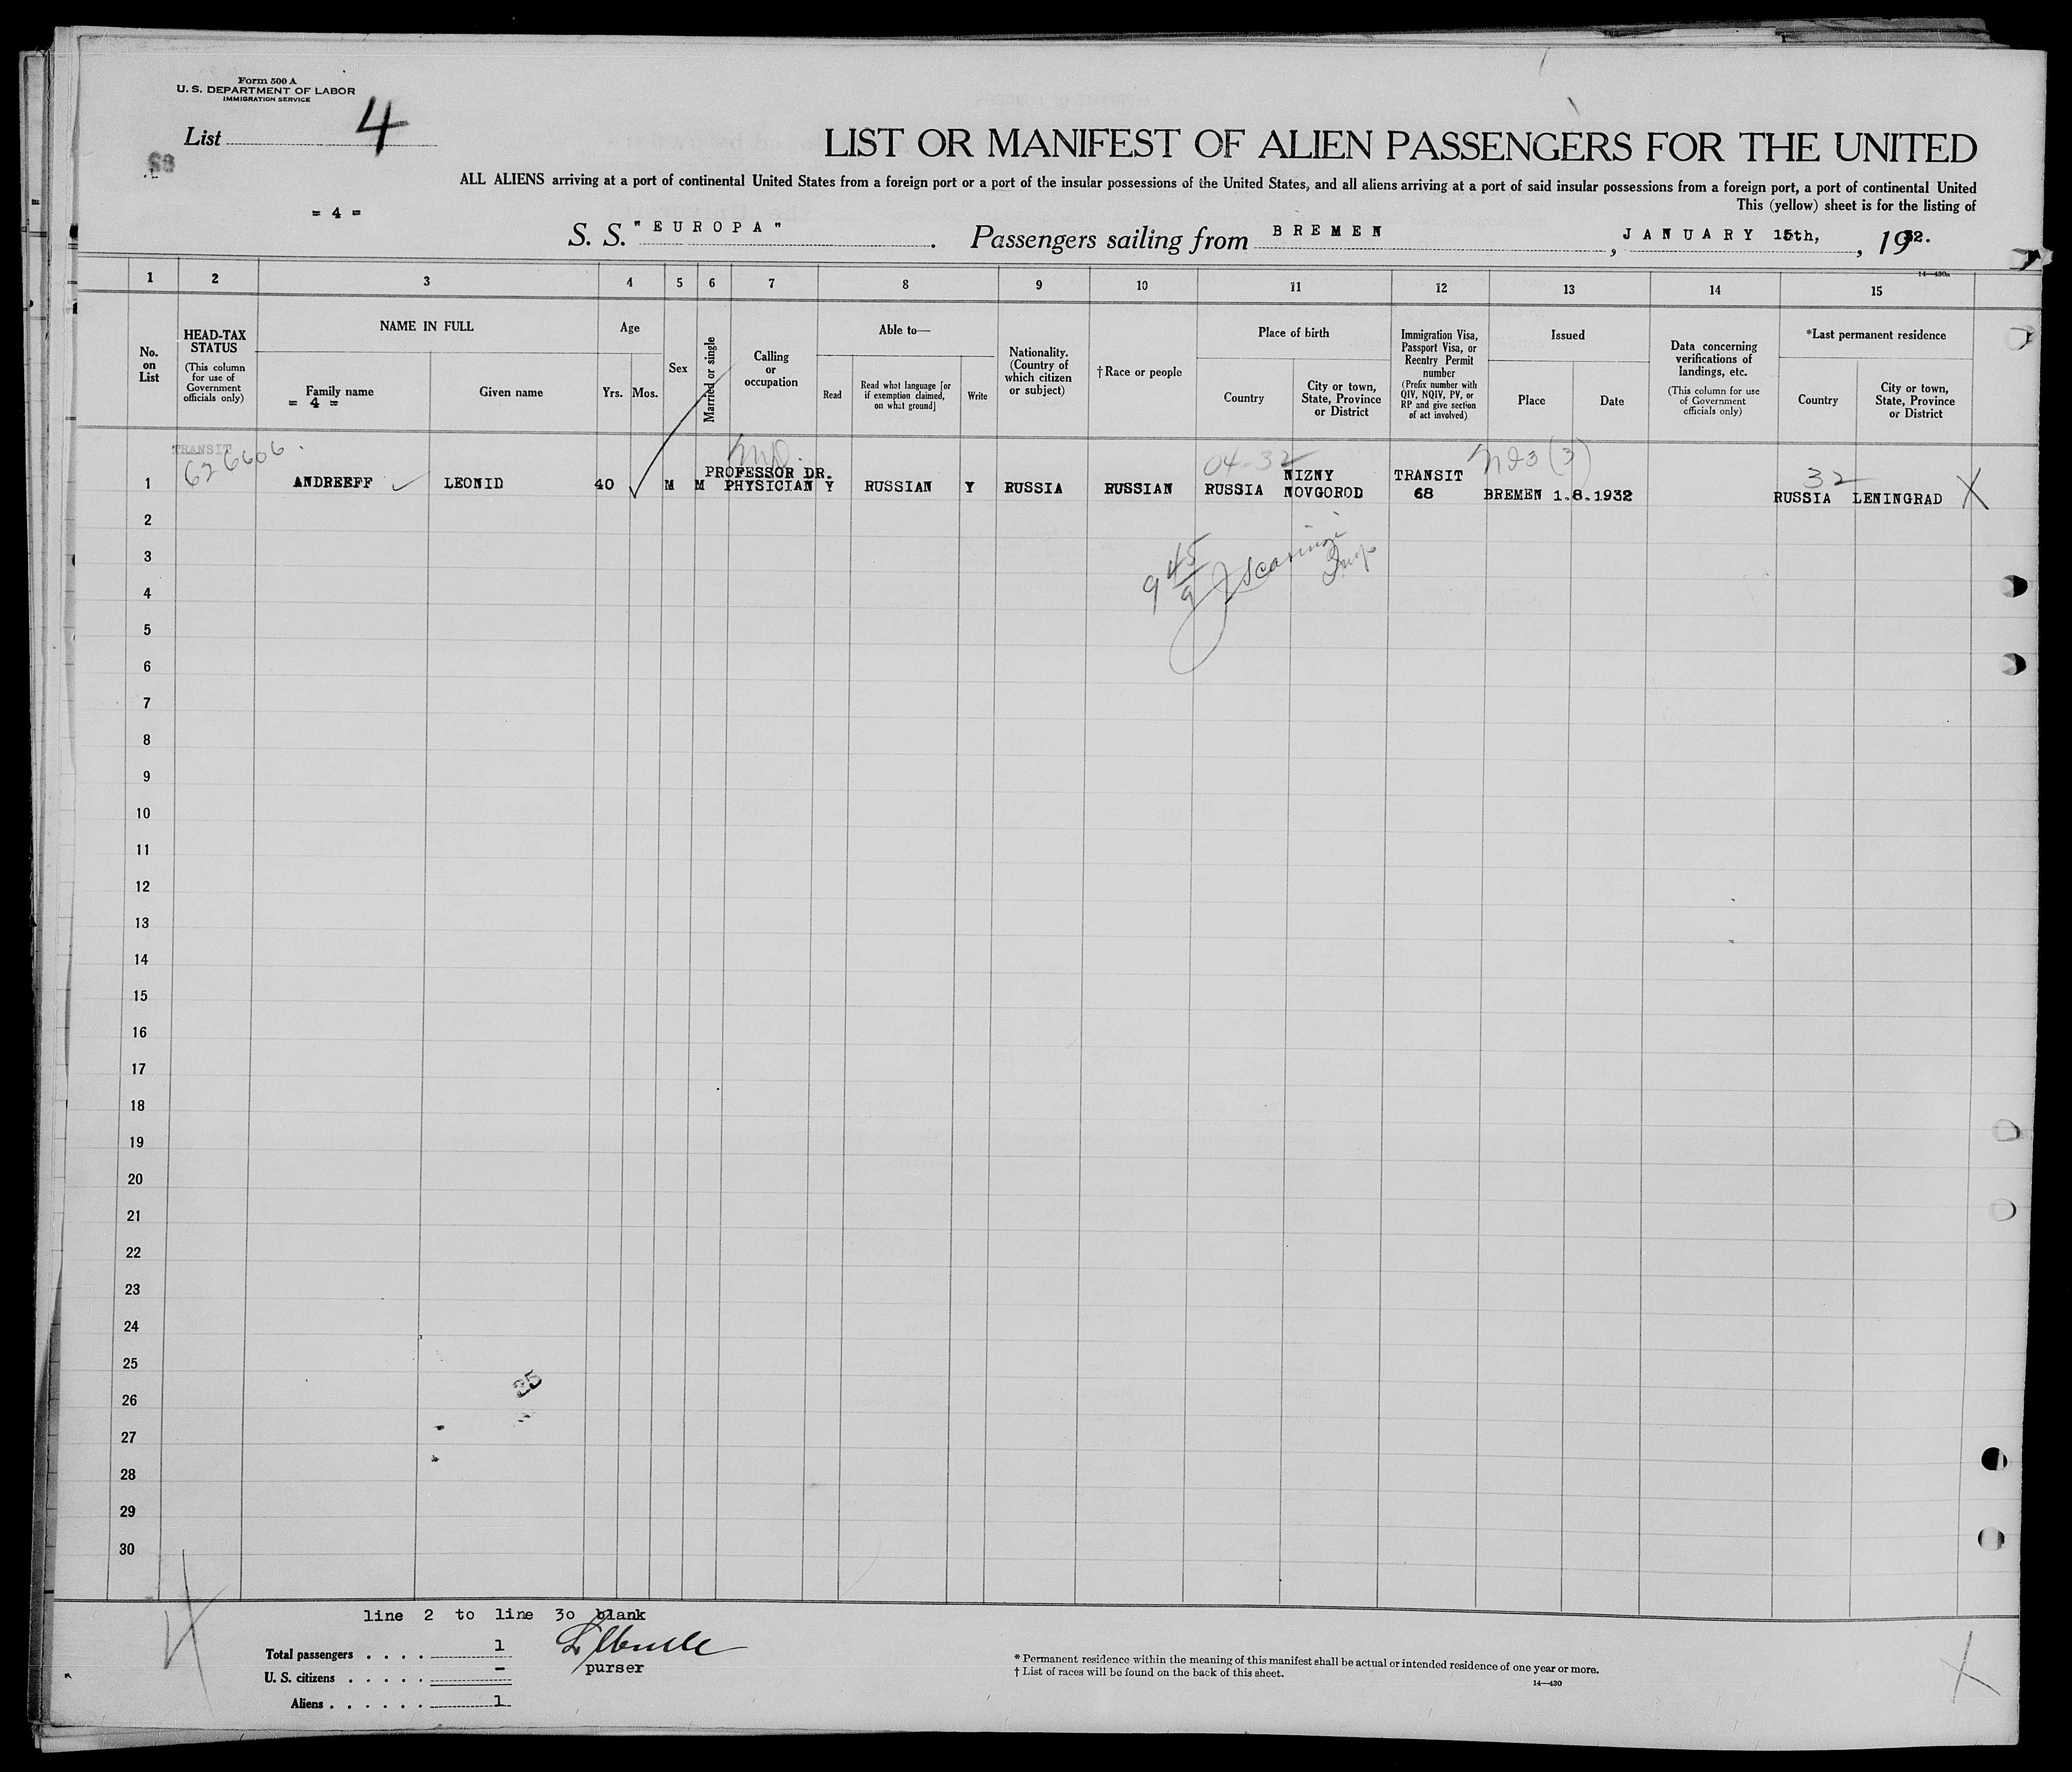 Form 500 A
U. S. DEPARTMENT OF LABOR
IMMIGRATION SERVICE
List 4
= 4 =
LIST OR MANIFEST OF ALIEN PASSENGERS FOR THE UNITED
ALL ALIENS arriving at a port of continental United States from a foreign port or a port of the insular possessions of the United States, and all aliens arriving at a port of said insular possessions from a foreign port, a port of continental United
This (yellow) sheet is for the listing of
S. S. "EUROPA". Passengers sailing from BREMEN, JANUARY 15th, , 1932.
14—430a
1 2 3 4 5 6 7 8 9 10 11 12 13 14 15
No. on List
HEAD-TAX STATUS
(This column for use of Government officials only)
NAME IN FULL
Family name
= 4 =
Given name
Age
Yrs. Mos.
Sex
Married or single
Calling or occupation
Able to—
Read
Read what language [or if exemption claimed, on what ground]
Write
Nationality. (Country of which citizen or subject)
†Race or people
Place of birth
Country
City or town, State, Province or District
Immigration Visa, Passport Visa, or Reentry Permit number
(Prefix number with QIV, NQIV, PV, or RP and give section of act involved)
Issued
Place
Date
Data concerning verifications of landings, etc.
(This column for use of Government officials only)
*Last permanent residence
Country
City or town, State, Province or District
TRANSIT
626606.
04-32
32
1 ANDREEFF LEONID 40 M M PROFESSOR DR. PHYSICIAN Y RUSSIAN Y RUSSIA RUSSIAN RUSSIA NIZNY NOVGOROD TRANSIT 68 BREMEN 1.8.1932 RUSSIA LENINGRAD X
2
3
4
5
6
7
8
9
10
11
12
13
14
15
16
17
18
19
20
21
22
23
24
25
26
27
28
29
30
25
line 2 to line 3o blank
Total passengers . . . . 1
U. S. citizens . . . . . —
Aliens . . . . . . 1
purser
* Permanent residence within the meaning of this manifest shall be actual or intended residence of one year or more.
† List of races will be found on the back of this sheet.
14—430
X